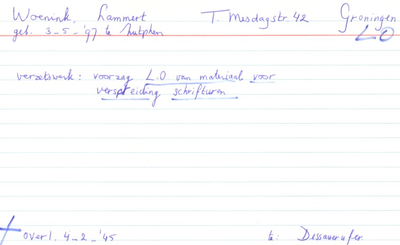 Woenink, Lammert T. Mesdagstr. 42 Groningen
geb. 3-5-'97 te Zutphen LO
verzetswerk: voorzag L.O van materiaal voor
verspreiding schrifturen
overl. 4-2-'45 te: Dessauerufer